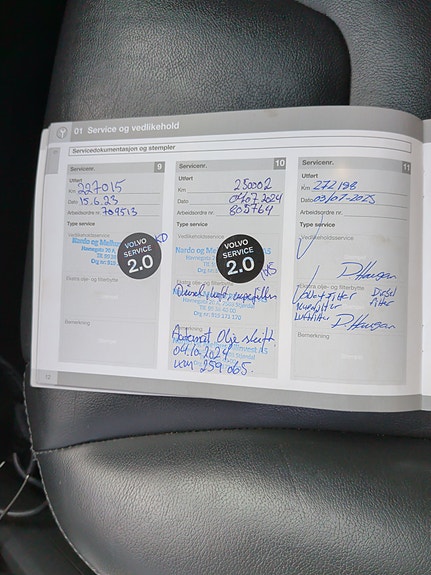 01 Service og vedlikehold
Servicedokumentasjon og stempler
Servicenr.
9
Utført
Km 227015
Date 15.6.23
Arbeidsordre nr. 709513
Type service
Vedlikeholdsservice
VOLVO
SERVICE
2.0
Ekstra olje- og filterbytte
Bemerkning
12
Servicenr.
10
Utført
Km 250002
Date 04.07.2024
Arbeidsordre nr. 805764
Type service
VOLVO
SERVICE
2.0
Ekstra olje- og filterbytte
Diesel, luft,
Automat Olje skift
04.10.2024
km 259.065.
Servicenr.
11
Utført
Km 272198
Date 09/07-2025
Arbeidsordre nr.
Type service
Vedlikeholdsservice
D. Haugen
Ekstra olje- og filterbytte
Diesel
filter
Luftfilter
D. Haugen
Bemerkning